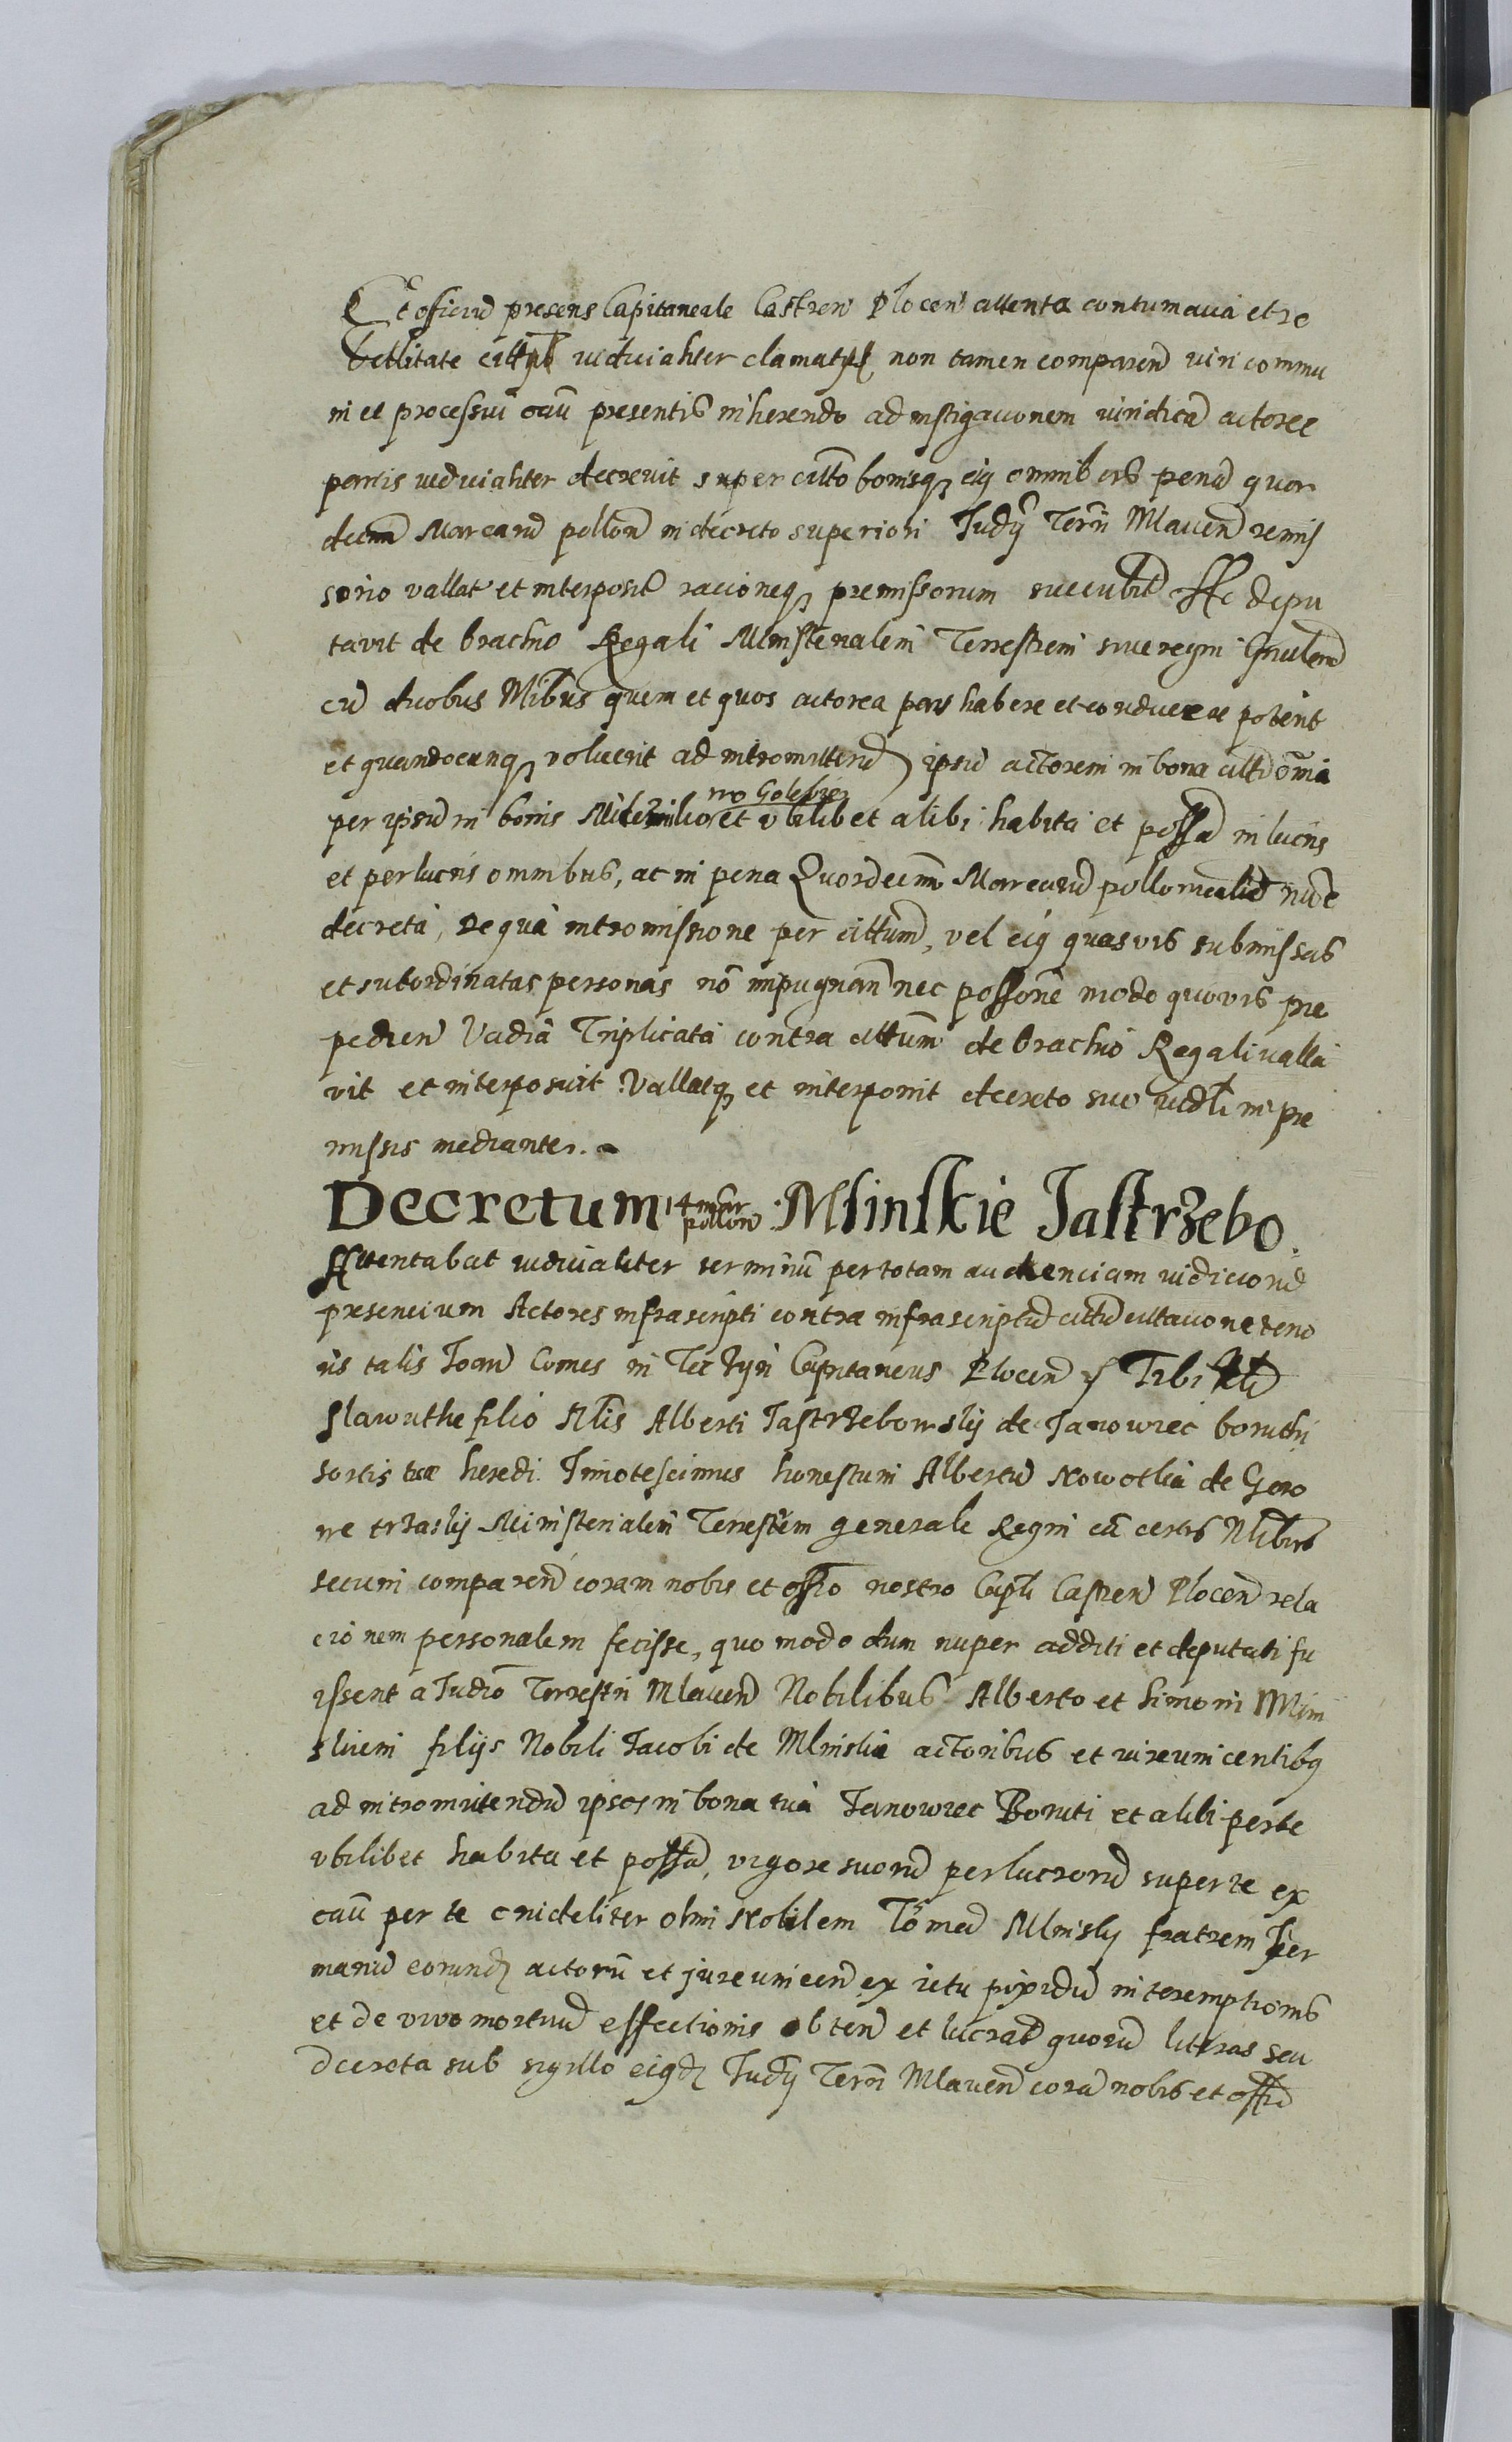 Et officiu presens Capitaneale Castren Plocen attenta contumacia et re
bellitate iudicialiter non tamen comparen viri commu
ni et processui cau presentis inherendo ad instigacionem iuridica actoree
partis iudicialiter decrevit super citto bonisq eig omnibus pena quor
decim Marcaru pollon in decreto superiori Judy Terrn Mlaven remis
sorio vallat et interposit racioneq premissorum succubit Hc depu
tavit de brachio Regali Ministerialem Terrestrem sive regni
cu duobus Nlibus quem et quos actorea pars habere et conducere poterit
et quandocunq voluerit ad intromittend ipsu actorem in bona citti omia
no Golebie
per ipsu in bonis et ubilibet alibi habita et possa in lucris
et perlucris omnibus, ac in pena Quordecim Marcaru pollonicaliu nuc
decreta, De qua intromissione per cittum, vel eig quasvis submissas
et subordinatas personas no impugnan nec possone modo quovis pre
pedien Vadia Triplicata contra cittum de brachio Regali valla
vit et interposuit Vallatq et interponit decreto suo iudli in pre
missis mediante.
Decretum 14 mar pollon Mlinskie Jastrzebo.
Attentabat iudicialiter terminu per totam audienciam iudicioru
presencium Actores infrascripti contra infrascriptu cittu cittacione teno
ris talis Joan Comes in Teczyn Capitaneus Plocen Tibi
Slawuthe filio Nlis Alberti Jastrzebowsky de Janowiec boruthi
sortis tuæ heredi. Innotescimus honestum Albertu Nowotka de Goro
Ministerialem Terrestrem generale Regni cu certis Nlibus
secum comparen coram nobis et offio nostro Capli Castren Plocen rela
cionem personalem fecisse, quo modo dum nuper additi et deputati fu
issent a Judio Terrestri Mlaven Nobilibus Alberto et Simoni Mlin
skiem filijs Nobili Jacobi de Mlinska actoribus et iurevincentibg
ad intromittendu ipsos in bona tua Janowiec Boruti et alibi per te
ubilibet habita et possa, vigore suoru perlucroru super te ex
cau per te crudeliter olim Nobilem Toma Mlinsky fratrem Ger
manu eorund actoru et jurevincen ex ictu pixidu interemptionis
et de vivo mortuu effectionis obten et lucrat quoru literas seu
decreta sub sigillo eigd Judy Terrn Mlaven cora nobis et offio